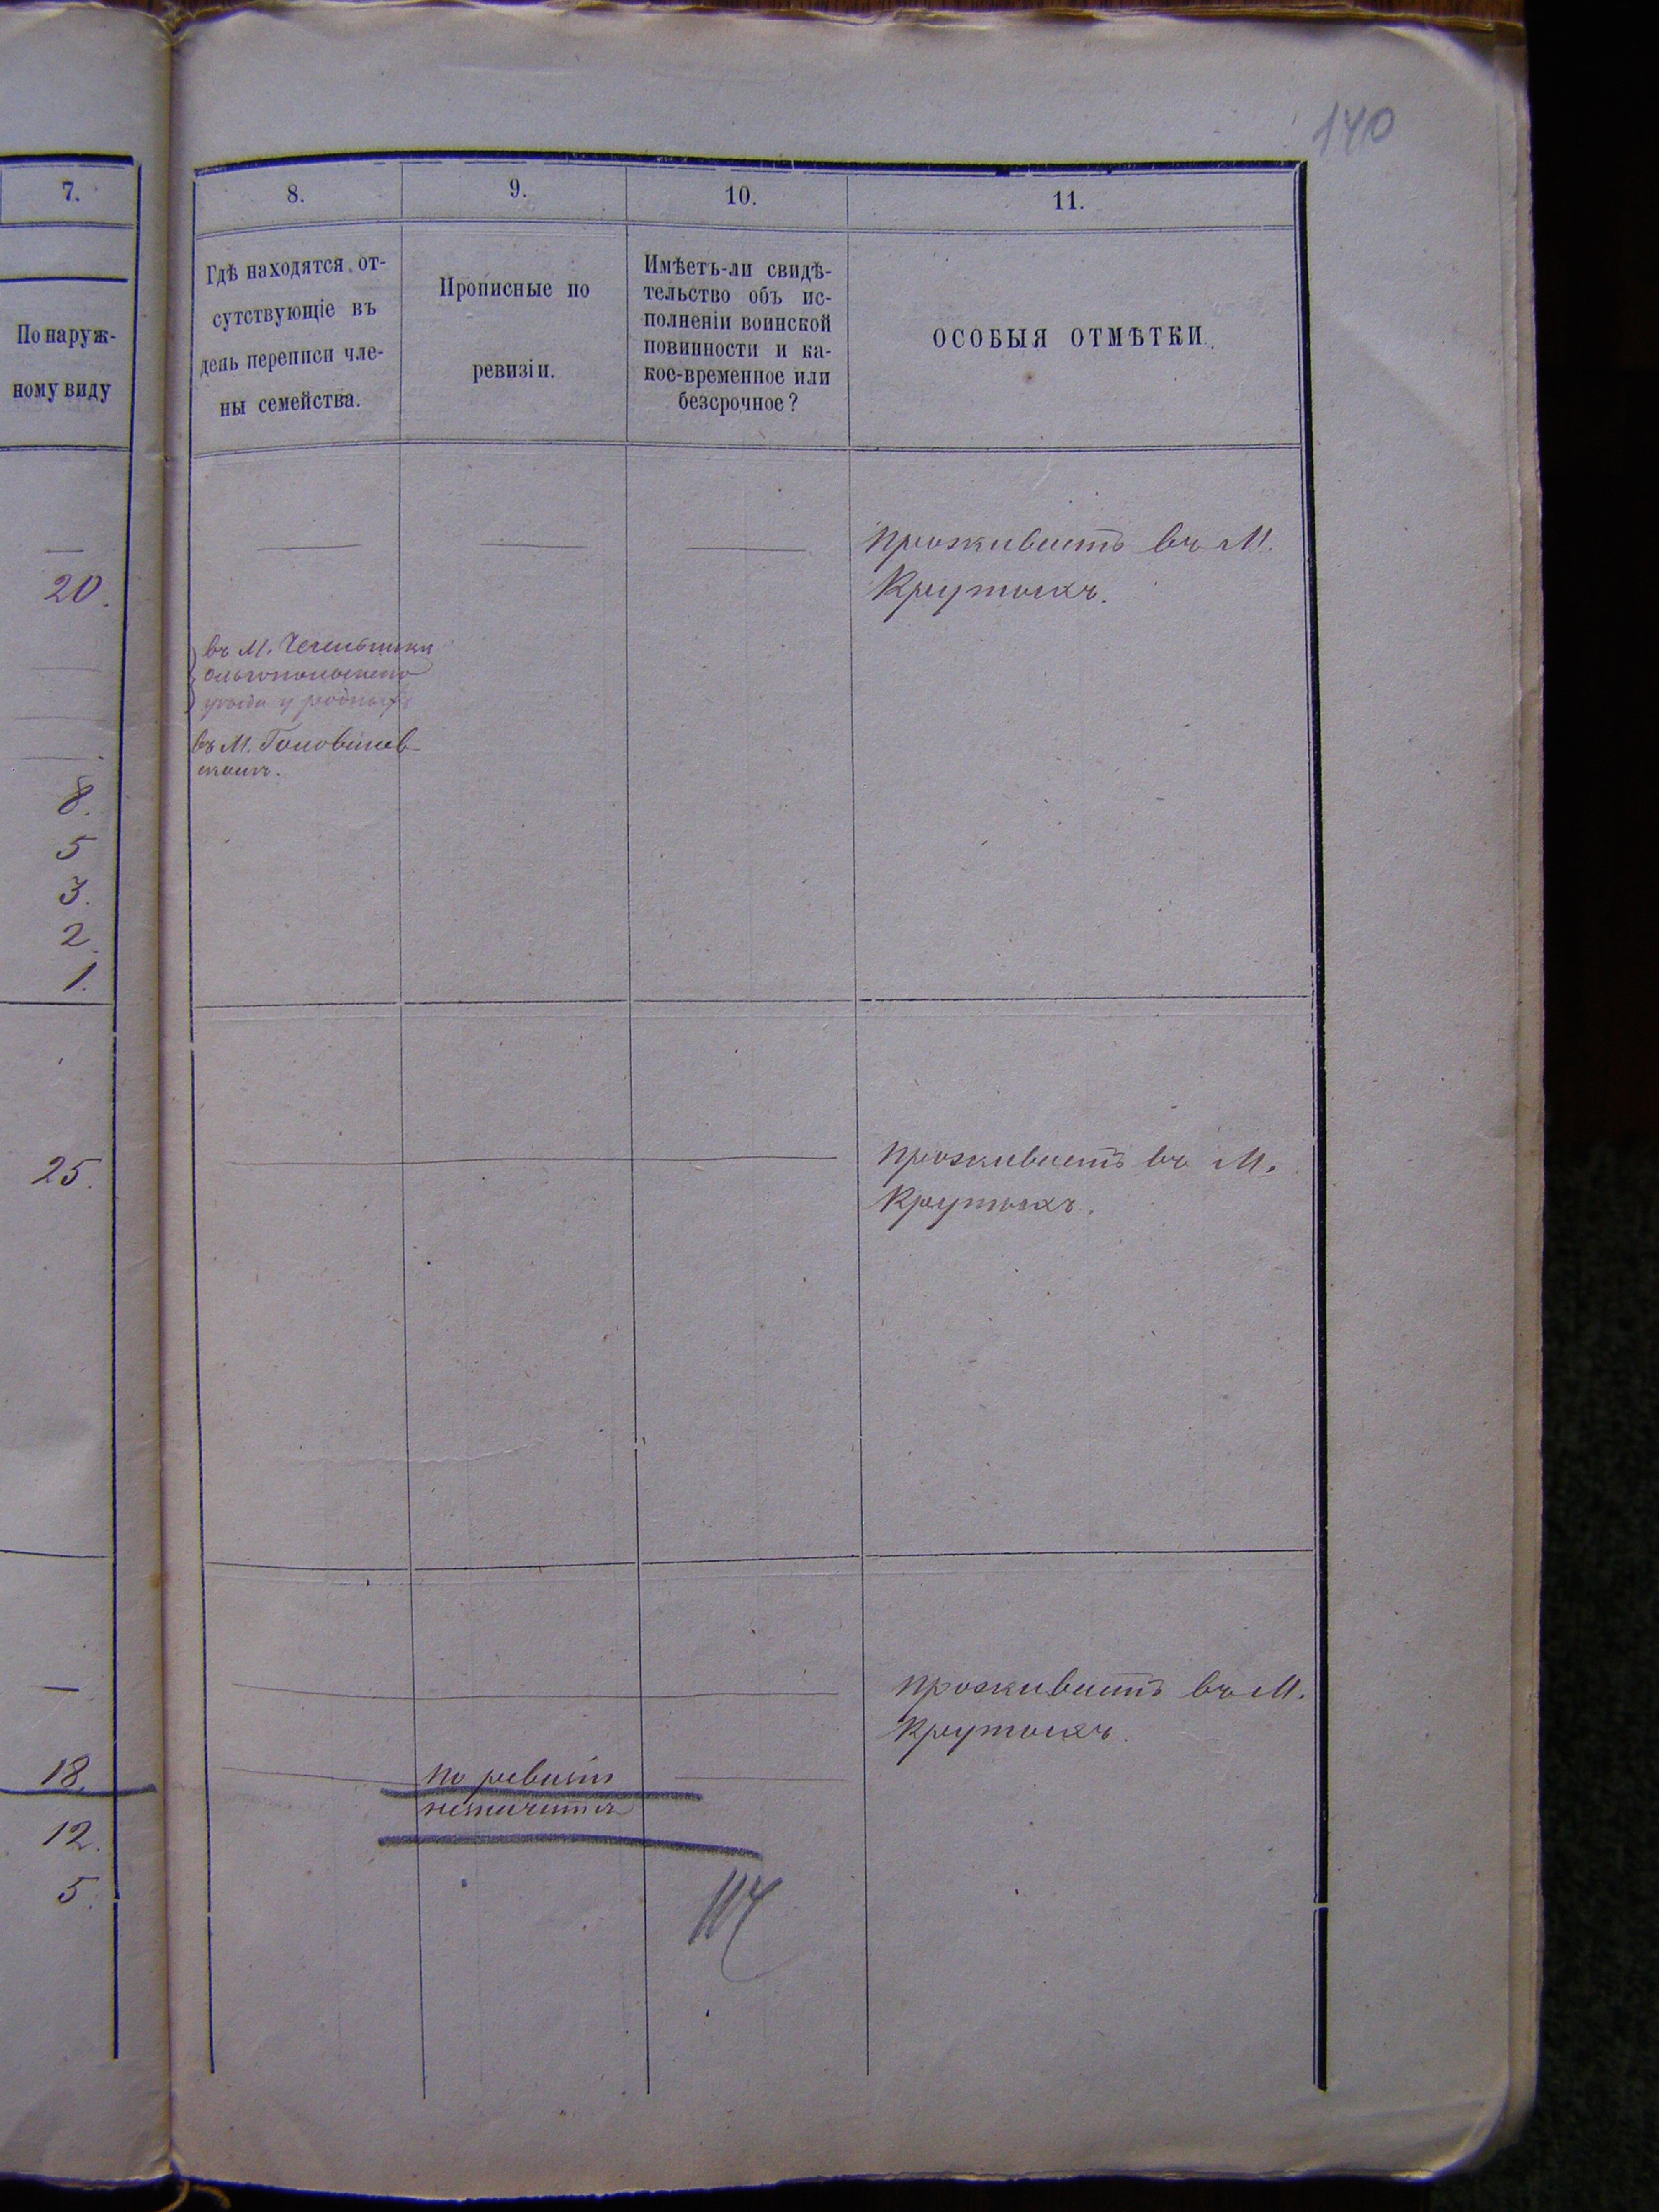 140
7.
8.
9.
10.
11.
По наруж-
ному виду
Гдѣ находятся от-
сутствующіе въ
день переписи чле-
ны семейства.
Прописные по
ревизіи.
Имѣетъ-ли свидѣ-
тельство объ ис-
полненіи воинской
повинности и ка-
кое-временное или
безсрочное?
ОСОБЫЯ ОТМѢТКИ.
проживаетъ въ М.
Крутыхъ.
20.
въ М. Чечельники
Ольгопольскаго
уѣзда у родныхъ
въ М. Головинев-
скомъ.
8.
5
3.
2.
1.
25.
проживаетъ въ М.
Крутыхъ.
проживаетъ въ М.
Крутыхъ.
18.
по ревизіи
незначится
12.
5.